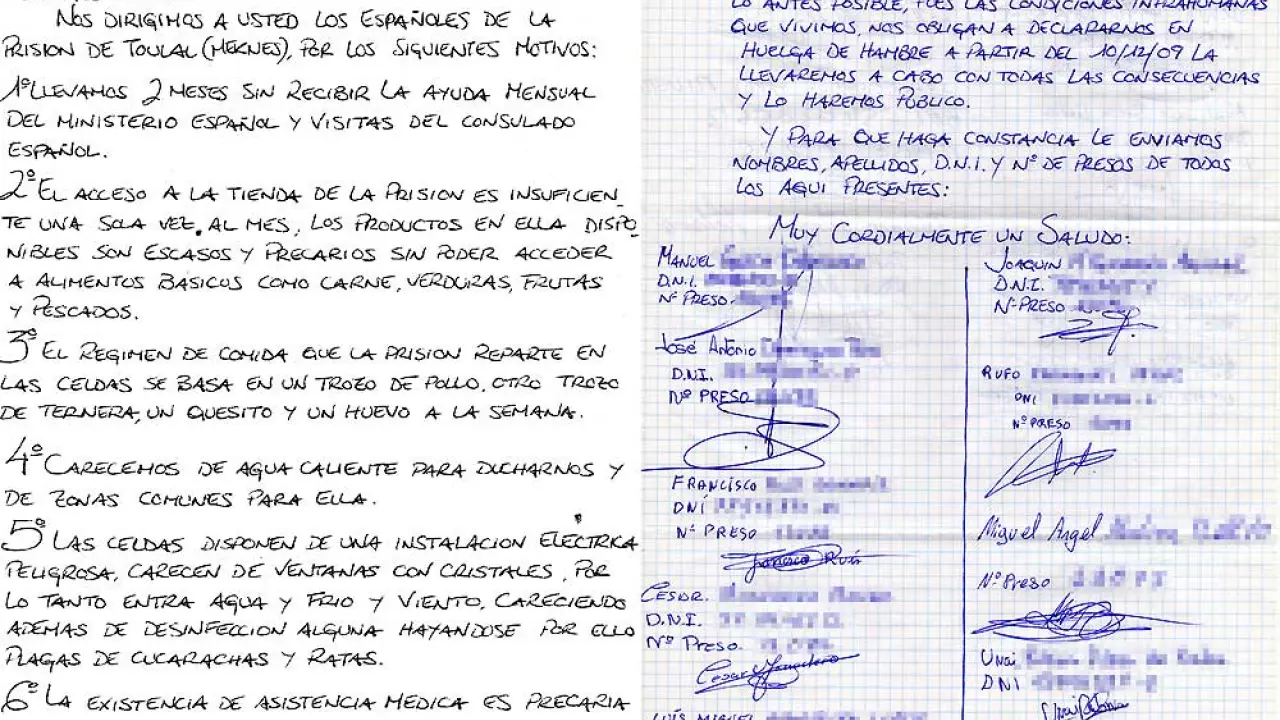 NOS DIRIGIMOS A USTED LOS ESPAÑOLES DE LA
PRISION DE TOULAL (MEKNES), POR LOS SIGUIENTES MOTIVOS:
1º LLEVAMOS 2 MESES SIN RECIBIR LA AYUDA MENSUAL
DEL MINISTERIO ESPAÑOL Y VISITAS DEL CONSULADO
ESPAÑOL.
2º EL ACCESO A LA TIENDA DE LA PRISION ES INSUFICIEN_
TE UNA SOLA VEZ. AL MES, LOS PRODUCTOS EN ELLA DISPO
NIBLES SON ESCASOS Y PRECARIOS SIN PODER ACCEDER
A ALIMENTOS BASICOS COMO CARNE, VERDURAS, FRUTAS
Y PESCADOS.
3º EL REGIMEN DE COMIDA QUE LA PRISION REPARTE EN
LAS CELDAS SE BASA EN UN TROZO DE POLLO, OTRO TROZO
DE TERNERA, UN QUESITO Y UN HUEVO A LA SEMANA.
4º CARECEMOS DE AGUA CALIENTE PARA DUCHARNOS Y
DE ZONAS COMUNES PARA ELLA.
5º LAS CELDAS DISPONEN DE UNA INSTALACION ELÉCTRICA
PELIGROSA, CARECEN DE VENTANAS CON CRISTALES, POR
LO TANTO ENTRA AGUA Y FRIO Y VIENTO, CARECIENDO
ADEMAS DE DESINFECCION ALGUNA HAYANDOSE POR ELLO
PLAGAS DE CUCARACHAS Y RATAS.
6º LA EXISTENCIA DE ASISTENCIA MEDICA ES PRECARIA
LO ANTES POSIBLE, PUES LAS CONDICIONES INFRAHUMANAS
QUE VIVIMOS, NOS OBLIGAN A DECLARARNOS EN
HUELGA DE HAMBRE A PARTIR DEL 10/12/09 LA
LLEVAREMOS A CABO CON TODAS LAS CONSECUENCIAS
Y LO HAREMOS PUBLICO.
Y PARA QUE HAGA CONSTANCIA LE ENVIAMOS
NOMBRES, APELLIDOS, D.N.I. Y Nº DE PRESOS DE TODOS
LOS AQUI PRESENTES:
MUY CORDIALMENTE UN SALUDO:
MANUEL
D.N.I.
Nº PRESO.
José Antonio
D.N.I.
Nº PRESO
FRANCISCO
DNÍ
Nº PRESO
Francisco Ruís
CESAR.
D.N.I.
Nº PRESO.
LUIS MIGUEL
JOAQUIN
D.N.I.
Nº PRESO
RUFO
DNI
Nº PRESO
Miguel Angel
Nº Preso
Unai
DNI